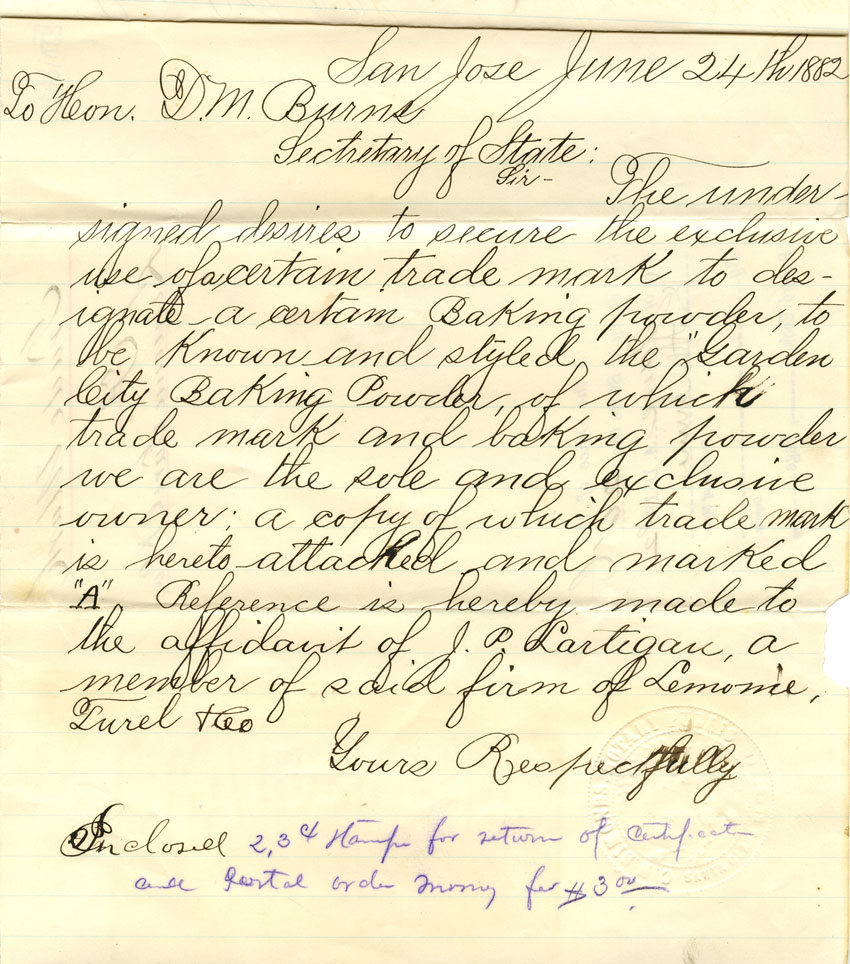 San Jose June 24th 1882
To Hon. D. M. Burns
Secretary of State:
Sir-
The under-
signed desires to secure the exclusive
use of a certain trade mark to des-
ignate a certain Baking powder, to
be Known and styled the "Garden
City Baking Powder, of which
trade mark and baking powder
we are the sole and exclusive
owner: a copy of which trade mark
is hereto attached and marked
"A" Reference is hereby made to
the affidavit of J. P. Lartigau, a
member of said firm of Lemoine,
Turel & Co
Yours Respectfully
Enclosed 2, 3¢ stamps for return of certificate
and Postal order money for $3.00